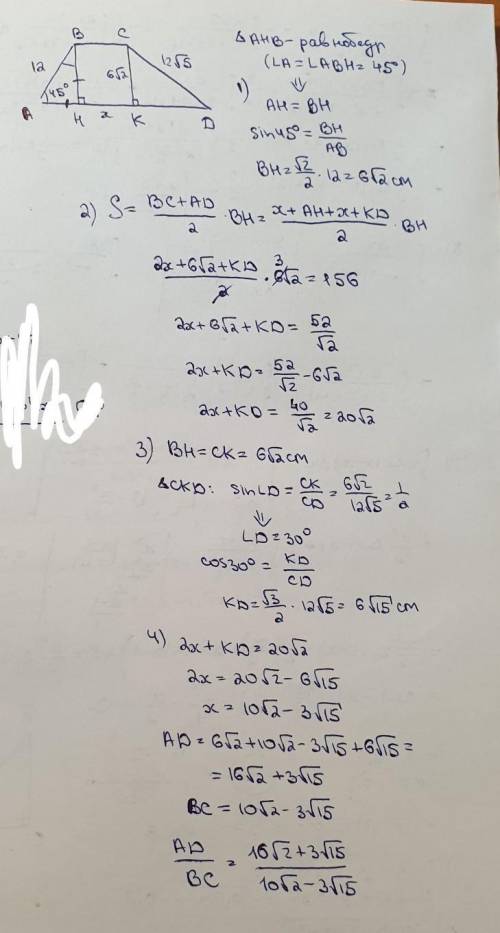 B C
12 6√2 12√5
45°
A H x K D
ΔAHB-равнобедр
(LA=LABH=45°)
⇓
1) AH=BH
sin45°=BH/AB
BH=√2/2·12=6√2cm
2) S=(BC+AD)/2·BH=(x+AH+x+KD)/2·BH
(2x+6√2+KD)/2·6√2=156
3
2x+6√2+KD=52/√2
2x+KD=52/√2-6√2
2x+KD=40/√2=20√2
3) BH=CK=6√2cm
ΔCKD: sinLD=CK/CD=6√2/12√5=1/2
⇓
LD=30°
cos30°=KD/CD
KD=√3/2·12√5=6√15cm
4) 2x+KD=20√2
2x=20√2-6√15
x=10√2-3√15
AD=6√2+10√2-3√15+6√15=
=16√2+3√15
BC=10√2-3√15
AD/BC=(16√2+3√15)/(10√2-3√15)